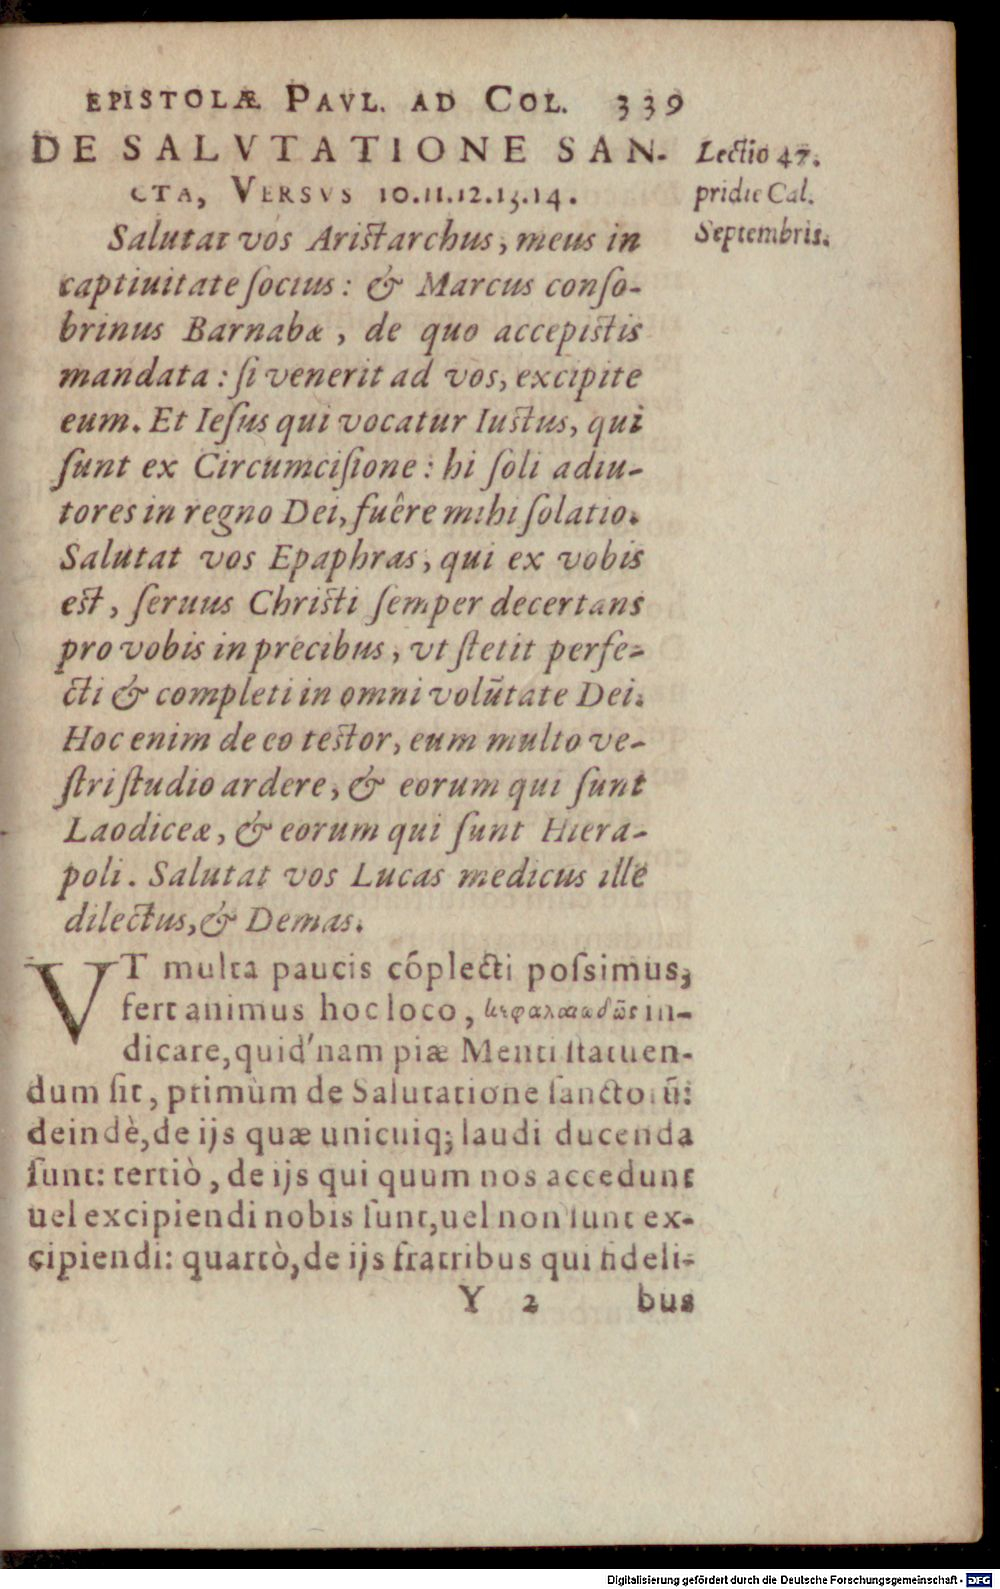 EPISTOLÆ PAVL. AD COL. 339
DE SALVTATIONE SAN-
CTA, VERSVS 10.11.12.13.14.
Lectio 47.
pridie Cal.
Septembris.
Salutat vos Aristarchus, meus in
captiuitate ſocius: & Marcus conſo-
brinus Barnabæ, de quo accepistis
mandata: ſi venerit ad vos, excipite
eum. Et Ieſus qui vocatur Iustus, qui
ſunt ex Circumciſione: hi ſoli adiu-
tores in regno Dei, fuêre mihi ſolatio.
Salutat vos Epaphras, qui ex vobis
est, ſeruus Christi ſemper decertans
pro vobis in precibus, vt ſtetit perfe-
cti & completi in omni volũtate Dei.
Hoc enim de eo testor, eum multo ve-
ſtri ſtudio ardere, & eorum qui ſunt
Laodiceæ, & eorum qui ſunt Hiera-
poli. Salutat vos Lucas medicus ille
dilectus, & Demas.
VT multa paucis cõplecti poſsimus,
fert animus hoc loco, κεφαλαιωδῶς in-
dicare, quid'nam piæ Menti ſtatuen-
dum ſit, primùm de Salutatione ſanctorũ:
deindè, de ijs quæ unicuiq; laudi ducenda
ſunt: tertiò, de ijs qui quum nos accedunt
uel excipiendi nobis ſunt, uel non ſunt ex-
cipiendi: quartò, de ijs fratribus qui fideli-
Y 2 bus
Digitalisierung gefördert durch die Deutsche Forschungsgemeinschaft - DFG